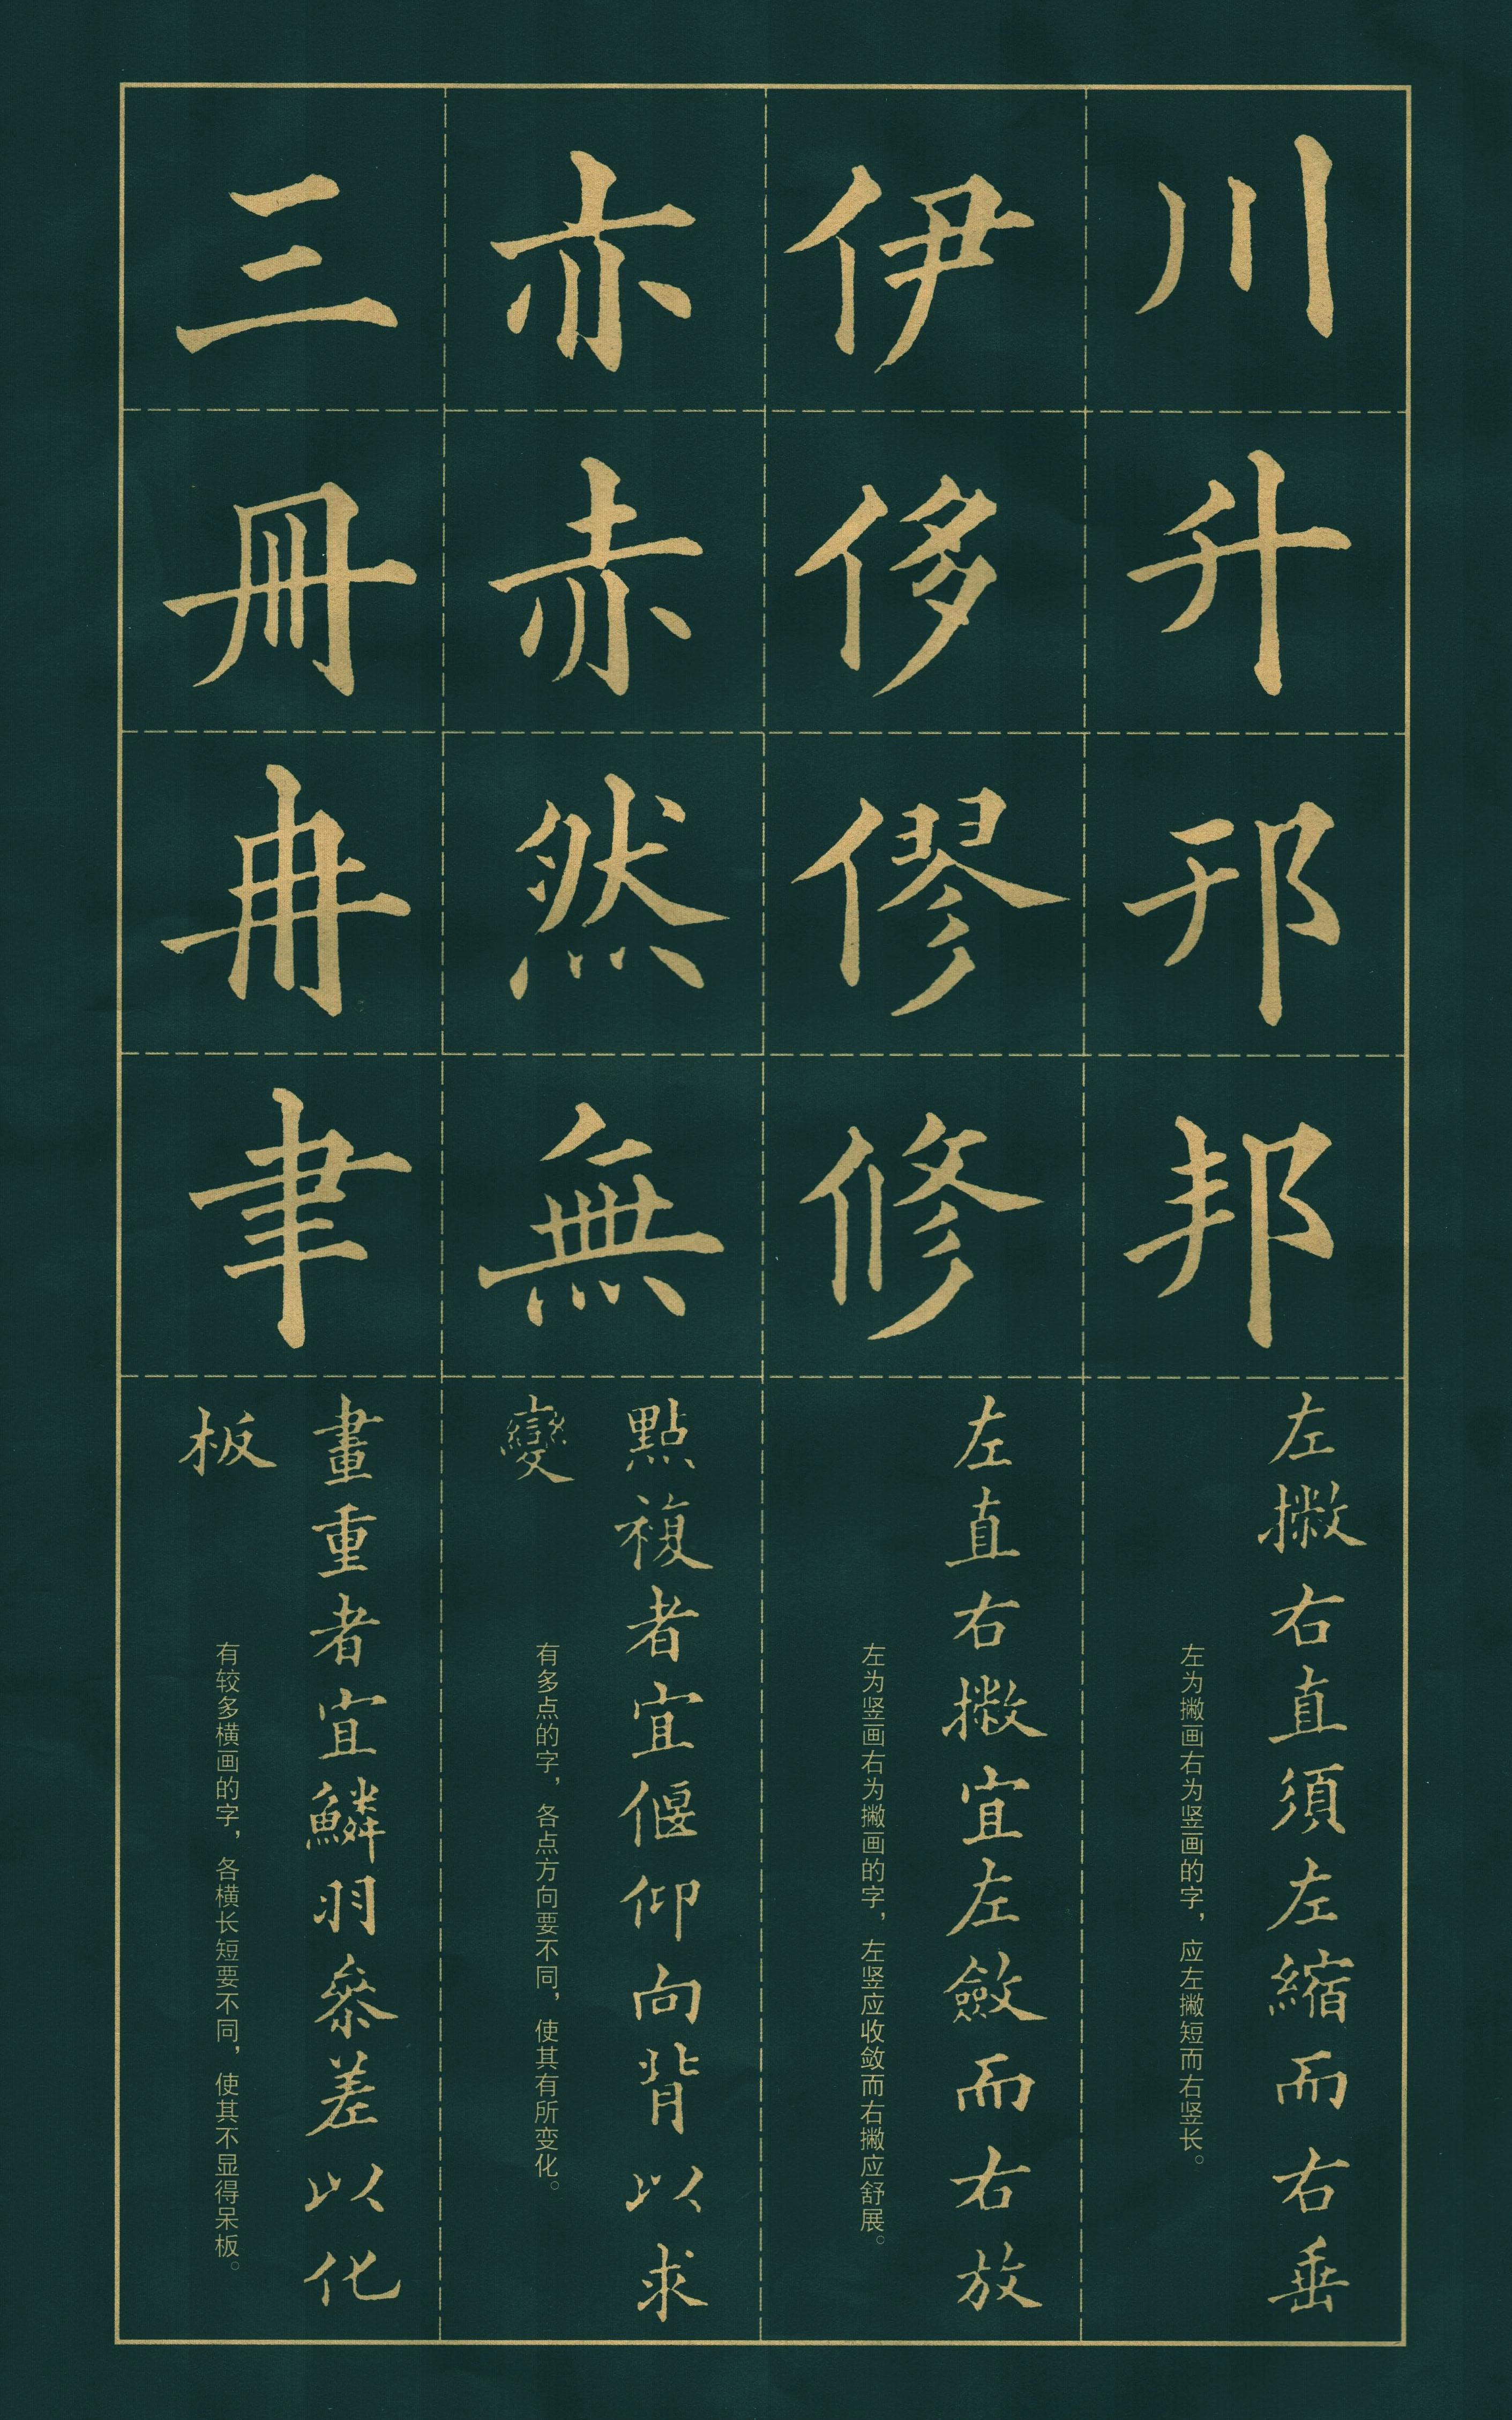 川升邗邦
左撇右直須左縮而右垂
左为撇画右为竖画的字，应左撇短而右竖长。
伊侈僇修
左直右撇宜左斂而右放
左为竖画右为撇画的字，左竖应收敛而右撇应舒展。
亦赤然無
點複者宜偃仰向背以求
變
有多点的字，各点方向要不同，使其有所变化。
三冊冉聿
畫重者宜鱗羽參差以化
板
有较多横画的字，各横长短要不同，使其不显得呆板。